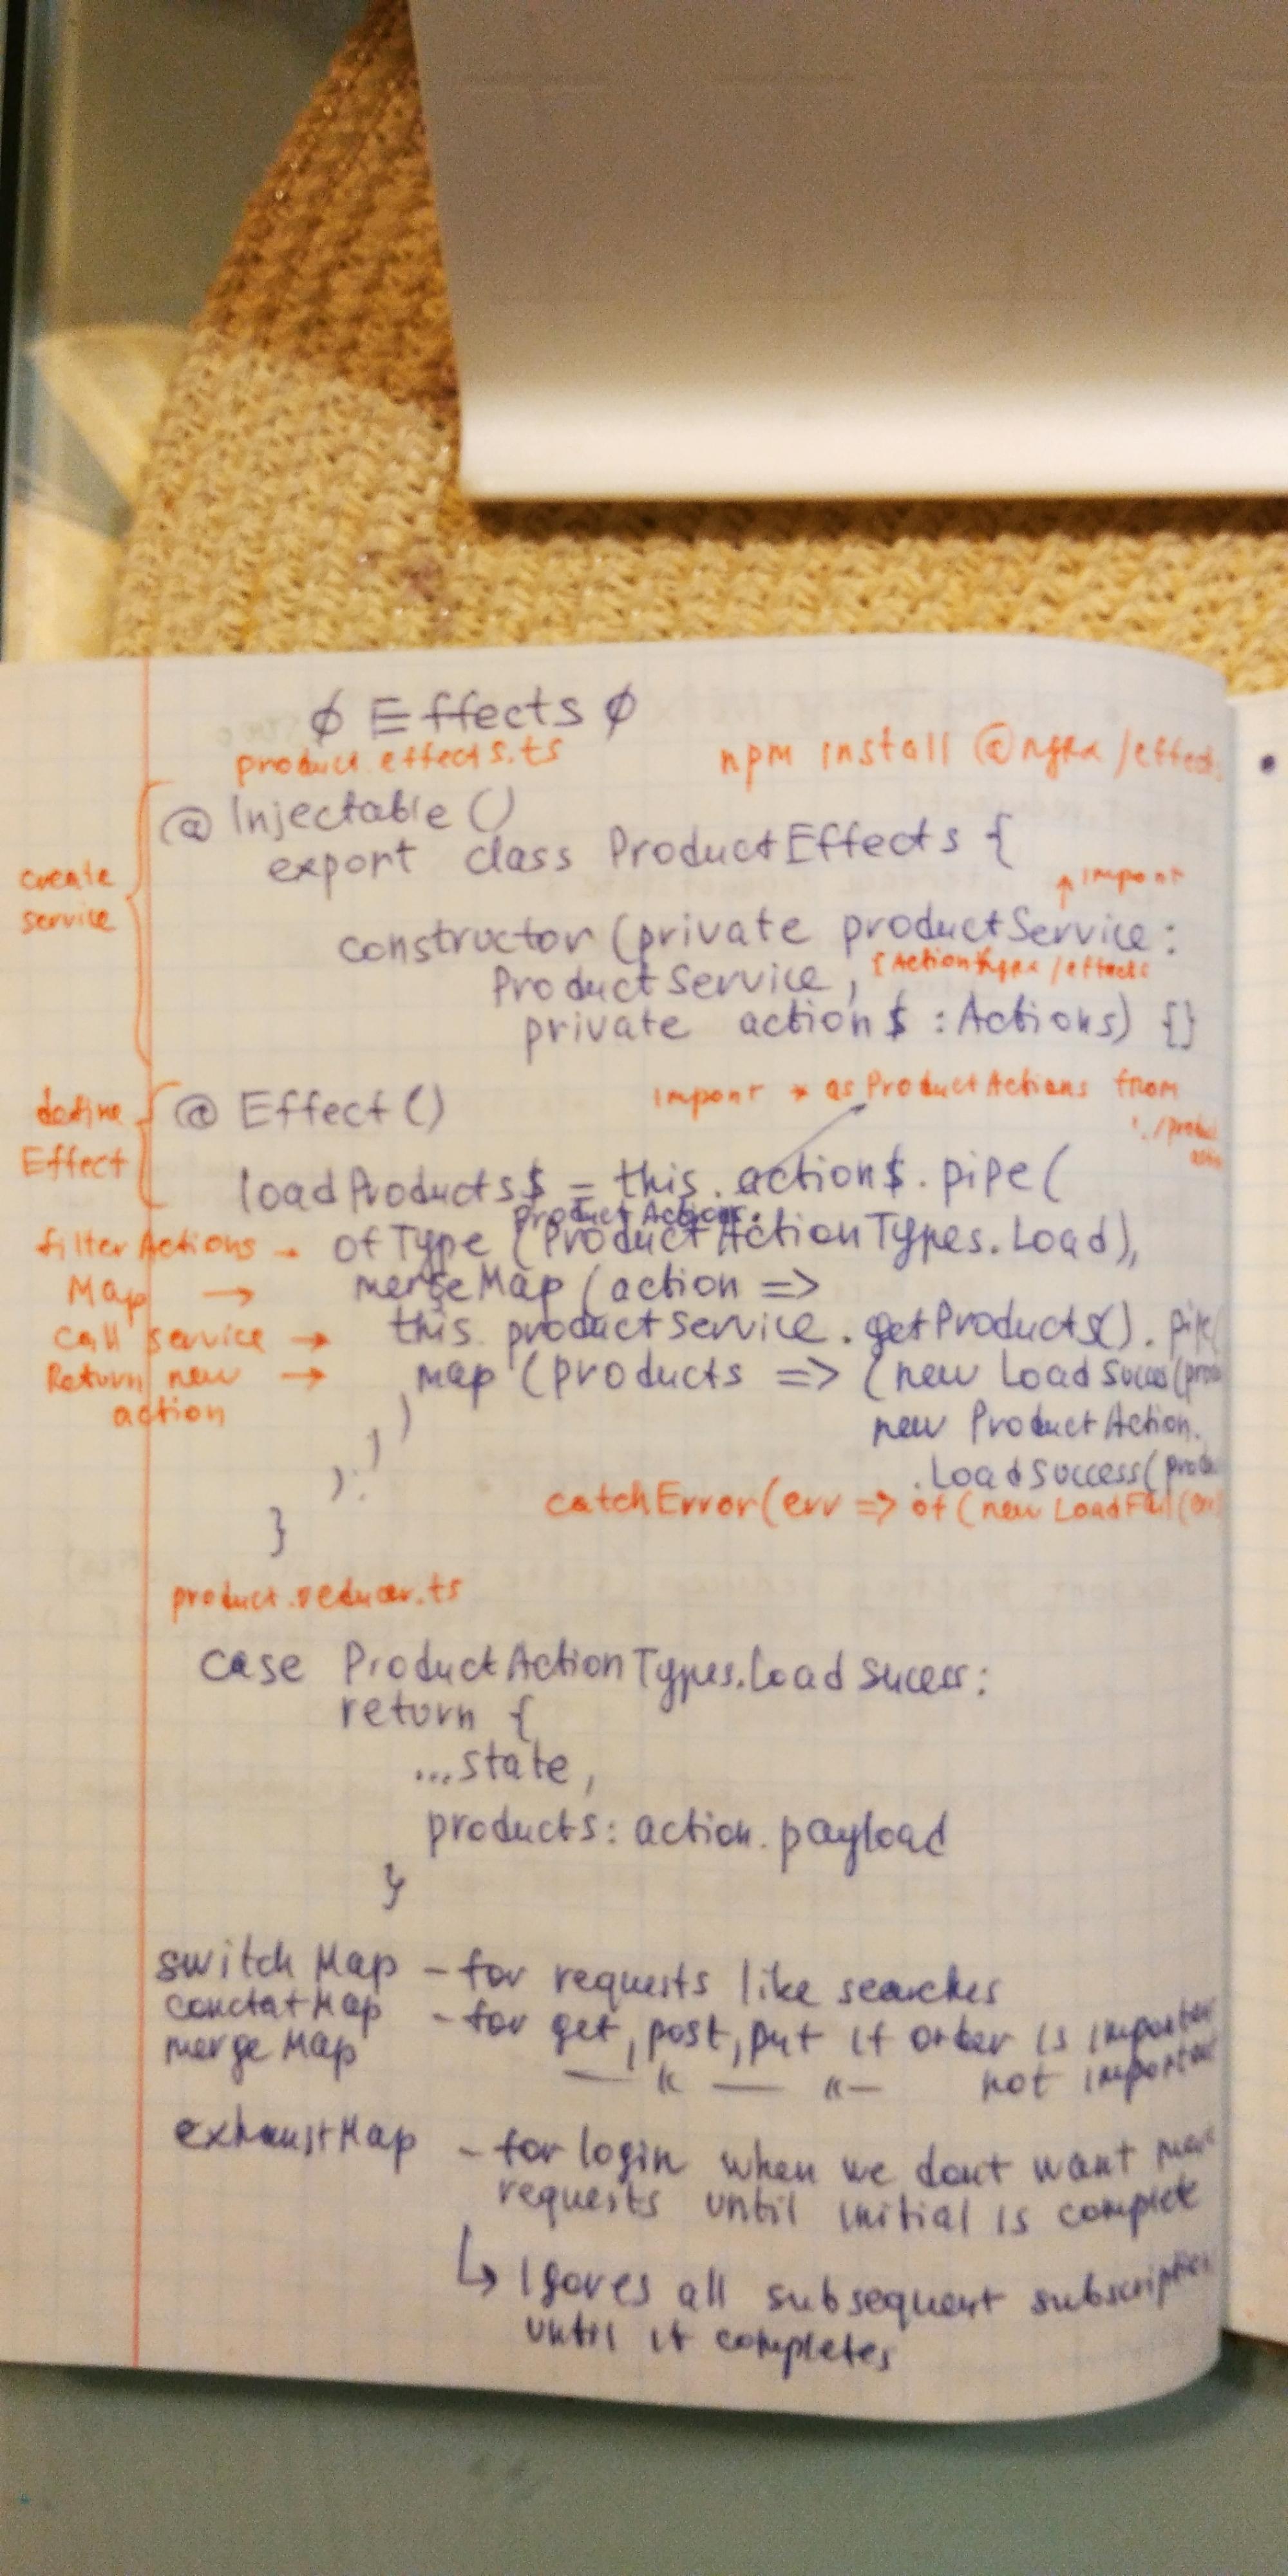 ϕ Effects ϕ
product.effects.ts
npm install @ngrx/effects
@ Injectable ()
export class ProductEffects {
create
service
↑ import
constructor (private productService :
ProductService ,
{Actions} ngrx/effects
private action$ : Actions) {}
define
Effect
@ Effect ()
import * as ProductActions from
'./product
loadProducts$ = this.action$.pipe(
ProductActions.
filter Actions → ofType (ProductActionTypes.Load),
Map → mergeMap (action =>
Call service → this.productService.getProducts().pipe(
Return new → map (products => (new LoadSucces(prod
action
)
new ProductAction.
)
.LoadSuccess(produ
);
catchError(err => of (new LoadFail (err
}
product.reducer.ts
case ProductActionTypes.LoadSucess:
return {
...state,
products: action.payload
}
switchMap - for requests like searches
conctatMap - for get, post, put if order is important
mergeMap — " — " — not important
exhaustMap - for login when we dont want more
requests until initial is complete
↳ Igores all subsequent subscription
until it completes